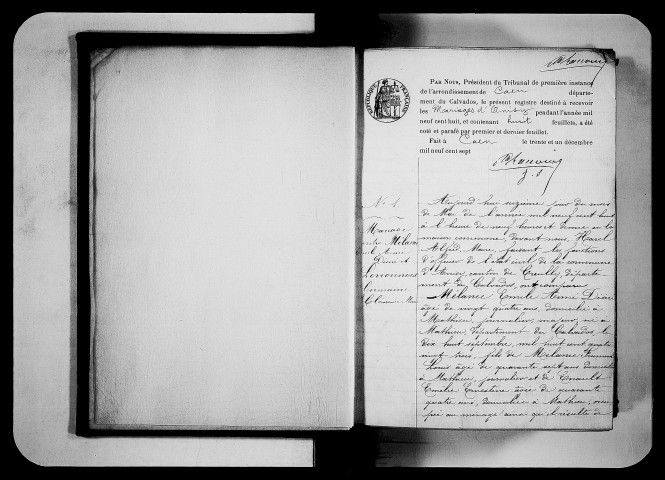 PAR NOUS, Président du Tribunal de première instance
de l'arrondissement de Caen départe-
ment du Calvados, le présent registre destiné à recevoir
les Mariages d'Anisy pendant l'année mil
neuf cent huit, et contenant huit feuillets, a été
coté et parafé par premier et dernier feuillet.
Fait à Caen le trente et un décembre
mil neuf cent sept
RÉPUBLIQUE FRANÇAISE
N° 1
Mariage
entre Mélanie
Emile
Aujourd'hui seizième jour du mois
de Mai de l'année mil neuf cent huit
à l'heure de neuf heures et demie en la
maison commune, devant nous, Harel
Alfred, Maire, faisant les fonctions
d'officier de l'état civil de la commune
d'Anisy, canton de Creully, départe-
ment du Calvados, ont comparu
Mélanie Emile Aimé Désiré
âgé de vingt quatre ans, domicilié à
Mathieu, journalier, majeur, né à
Mathieu, département du Calvados, le
dix huit septembre, mil huit cent quatre
vingt trois, fils de Mélanie
Louis âgé de quarante sept ans domicilié
à Mathieu, journalier et de
Emelie Ernestine âgée de quarante
quatre ans, domiciliée à Mathieu, occu
pée au ménage ainsi qu'il résulte de